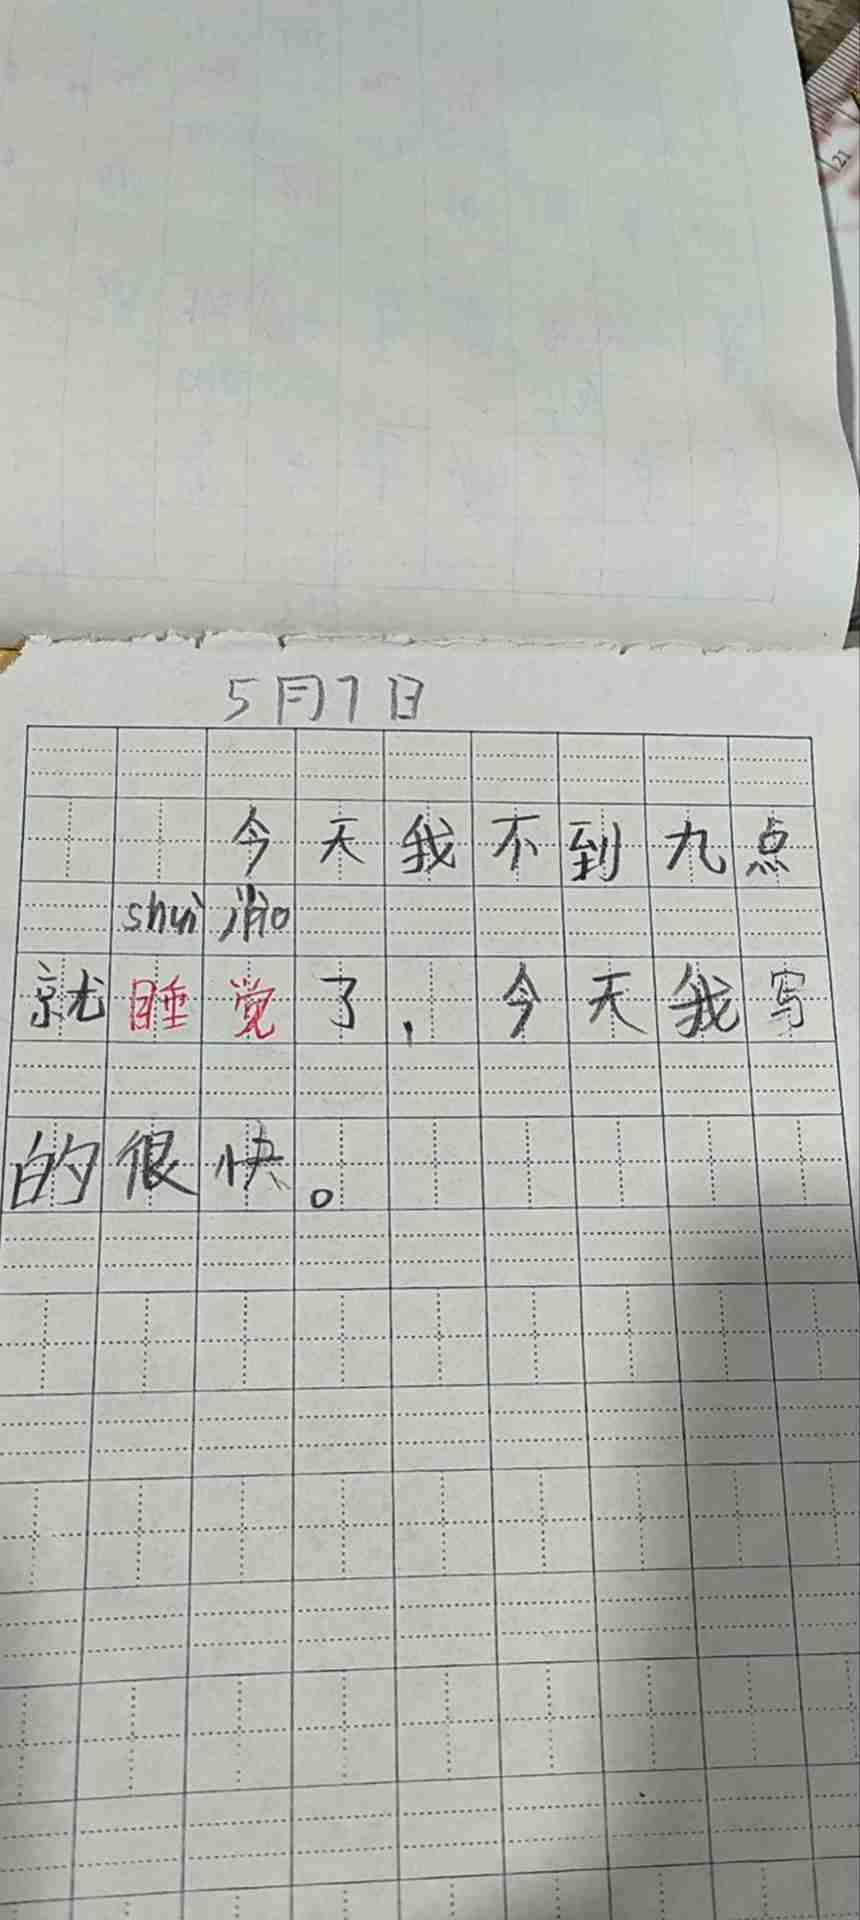 5月7日
今天我不到九点
shui jiao
就睡觉了，今天我写
的很快。
21